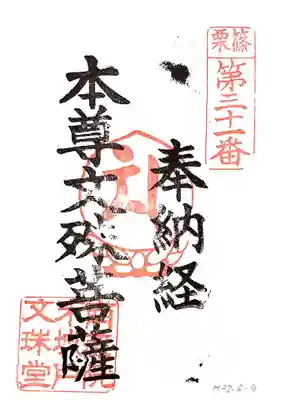 篠栗
第三十一番
奉納経
本尊文殊菩薩
文珠堂
H27.6-9